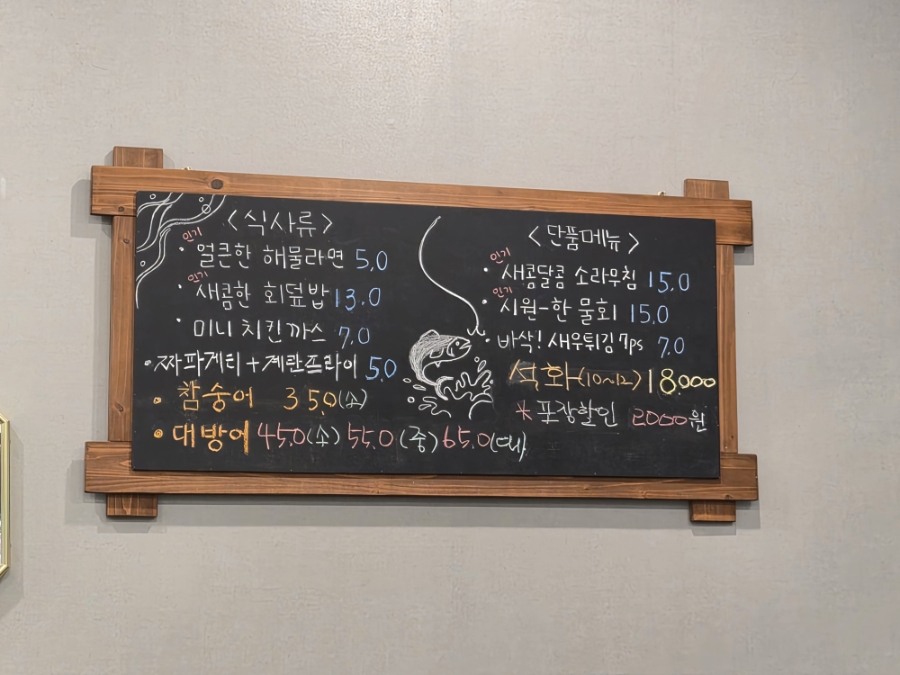 <식사류>
인기
· 얼큰한 해물라면 5.0
인기
· 새콤한 회덮밥 13.0
· 미니 치킨까스 7.0
· 짜파게티 + 계란프라이 5.0
· 참숭어 35.0 (소)
· 대방어 45.0 (소) 55.0 (중) 65.0 (대)
<단품메뉴>
인기
· 새콤달콤 소라무침 15.0
인기
· 시원-한 물회 15.0
· 바삭! 새우튀김 7ps 7.0
석화 (10~12) 18.000
* 포장할인 2000원